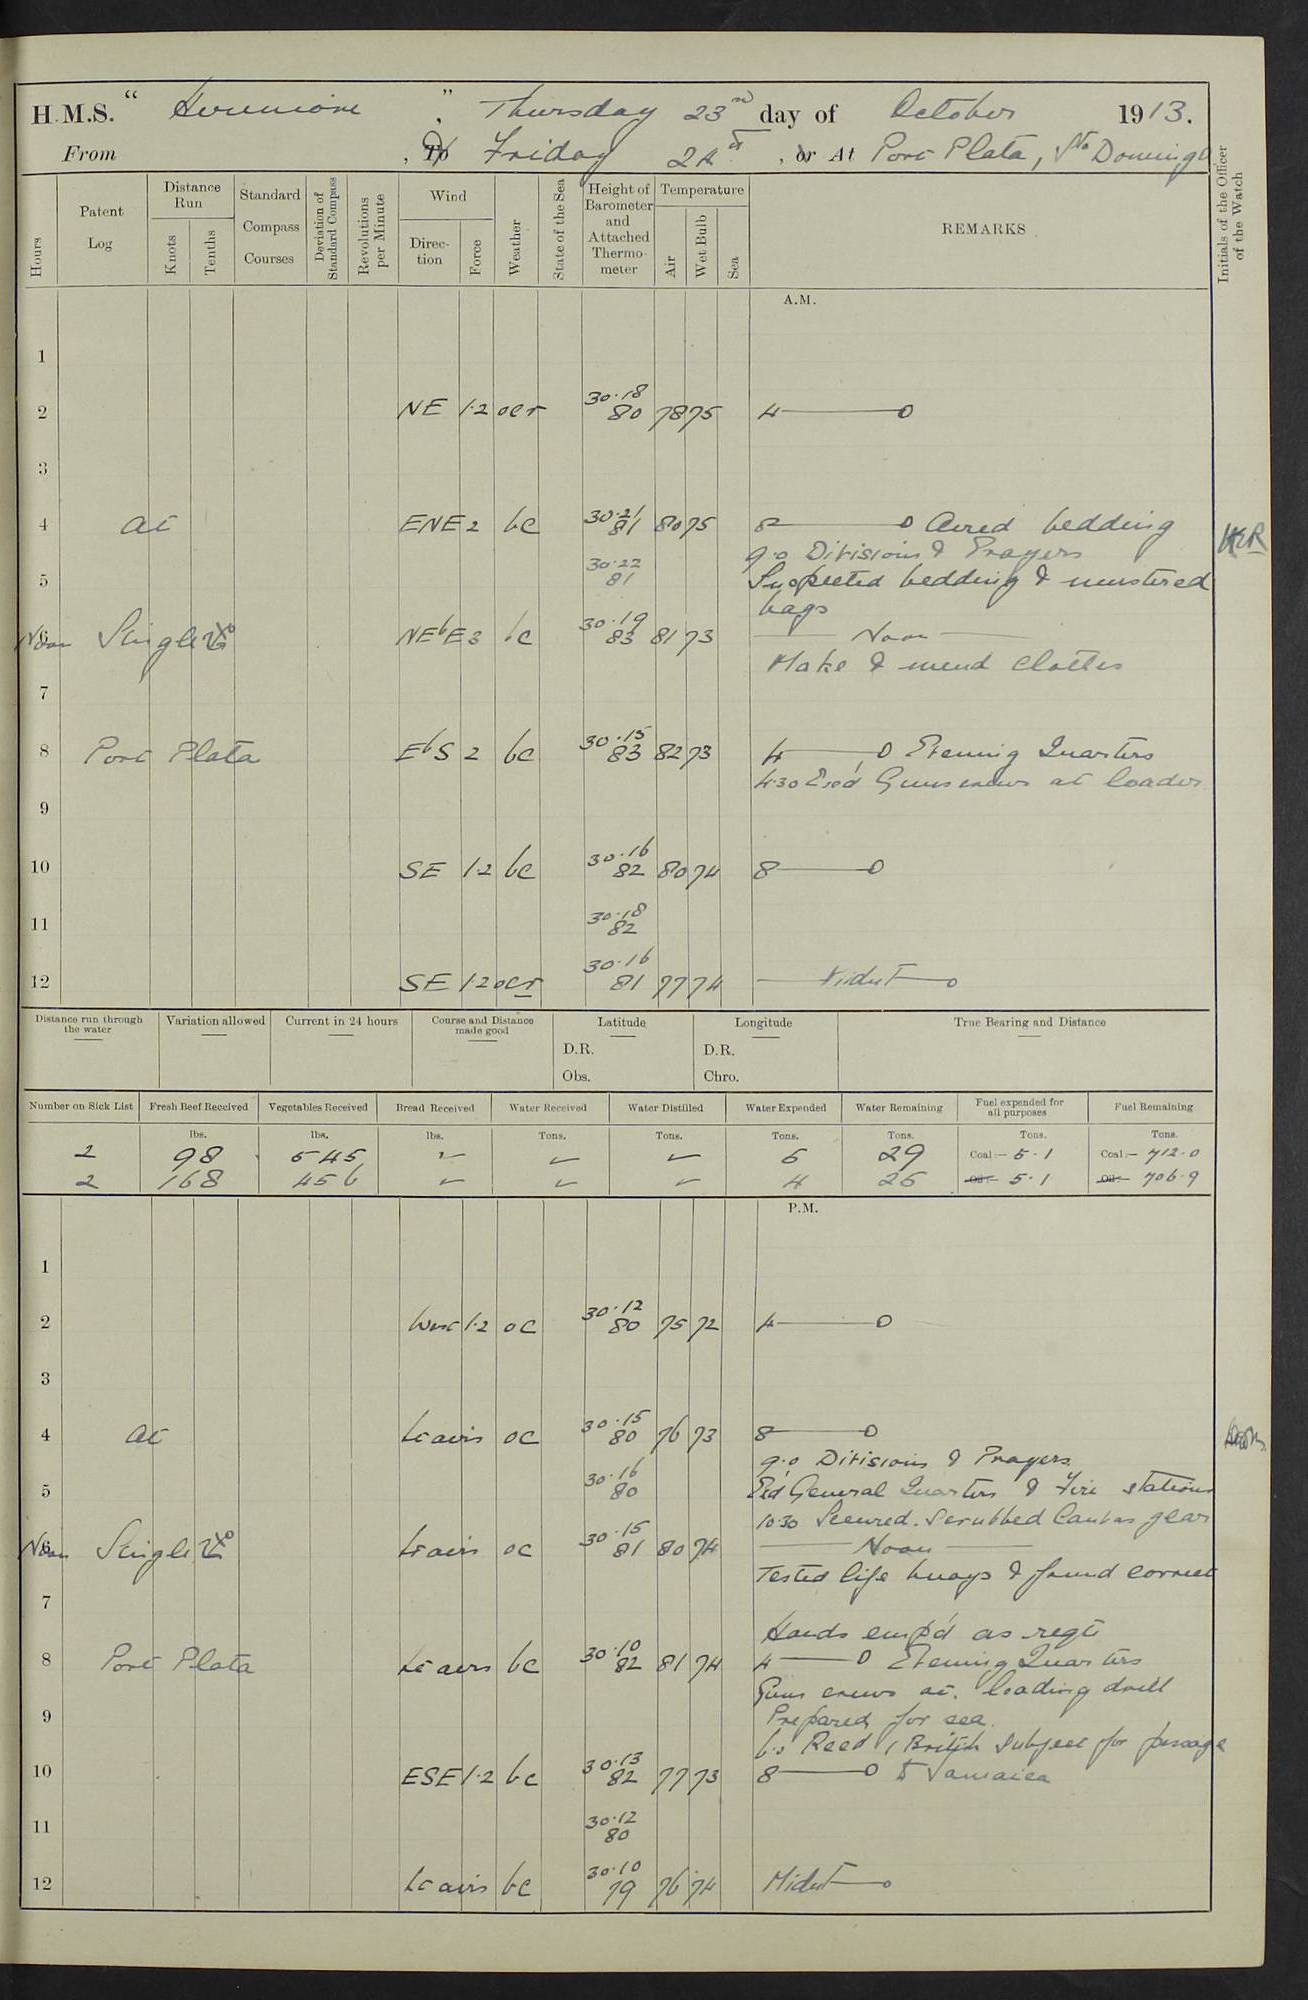 H.M.S. "Hermione", Thursday 23rd day of October 1913.
From , To Friday 24th , or At Port Plata, Sto Domingo
Hours
Patent Log
Distance Run
Knots
Tenths
Standard Compass Courses
Deviation of Standard Compass
Revolutions per Minute
Wind
Direction
Force
Weather
State of the Sea
Height of Barometer and Attached Thermometer
Temperature
Air
Wet Bulb
Sea
REMARKS
Initials of the Officer of the Watch
A.M.
1
2 NE 1.2 ocr 30.18 80 78 75 4 —— 0
3
4 At ENE 2 bc 30.21 81 80 75 8 —— 0 Aired bedding
9.0 Divisions & Prayers
5 30.22 81 Inspected bedding & mustered
bags
6 Noon Single NEbE 3 bc 30.19 83 81 73 —— Noon ——
Make & mend clothes
7
8 Port Plata EbS 2 bc 30.15 83 82 73 4 —— 0 Evening Quarters
4.30 Exed Guns crews at loader
9
10 SE 1.2 bc 30.16 82 80 74 8 —— 0
11 30.18 82
12 SE 1.2 ocr 30.16 81 77 74 —— Midnt —— 0
Distance run through the water
Variation allowed
Current in 24 hours
Course and Distance made good
Latitude
D.R.
Obs.
Longitude
D.R.
Chro.
True Bearing and Distance
Number on Sick List Fresh Beef Received Vegetables Received Bread Received Water Received Water Distilled Water Expended Water Remaining Fuel expended for all purposes Fuel Remaining
lbs. lbs. lbs. Tons. Tons. Tons. Tons. Tons. Tons.
2 98 545 ✓ ✓ ✓ 5 29 Coal:— 5.1 Coal:— 712.0
2 168 456 ✓ ✓ ✓ 4 25 Oil:— 5.1 Oil:— 706.9
P.M.
1
2 West 1.2 oc 30.12 80 75 72 4 —— 0
3
4 At Lt airs oc 30.15 80 76 73 8 —— 0
9.0 Divisions & Prayers
5 30.16 80 Exd General Quarters & Fire stations
10.30 Secured. Scrubbed Canvas gear
6 Noon Single Lt airs oc 30.15 81 80 74 —— Noon ——
Tested life buoys & found correct
7
Hands emp'd as reqte
8 Port Plata Lt airs bc 30.10 82 81 74 4 —— 0 Evening Quarters
Guns crews at loading drill
9 Prepared for sea.
6.0 Recd 1 British Subject for passage
10 ESE 1.2 bc 30.13 82 77 73 8 —— 0 to Jamaica
11 30.12 80
12 Lt airs bc 30.10 79 76 74 Midnt —— 0